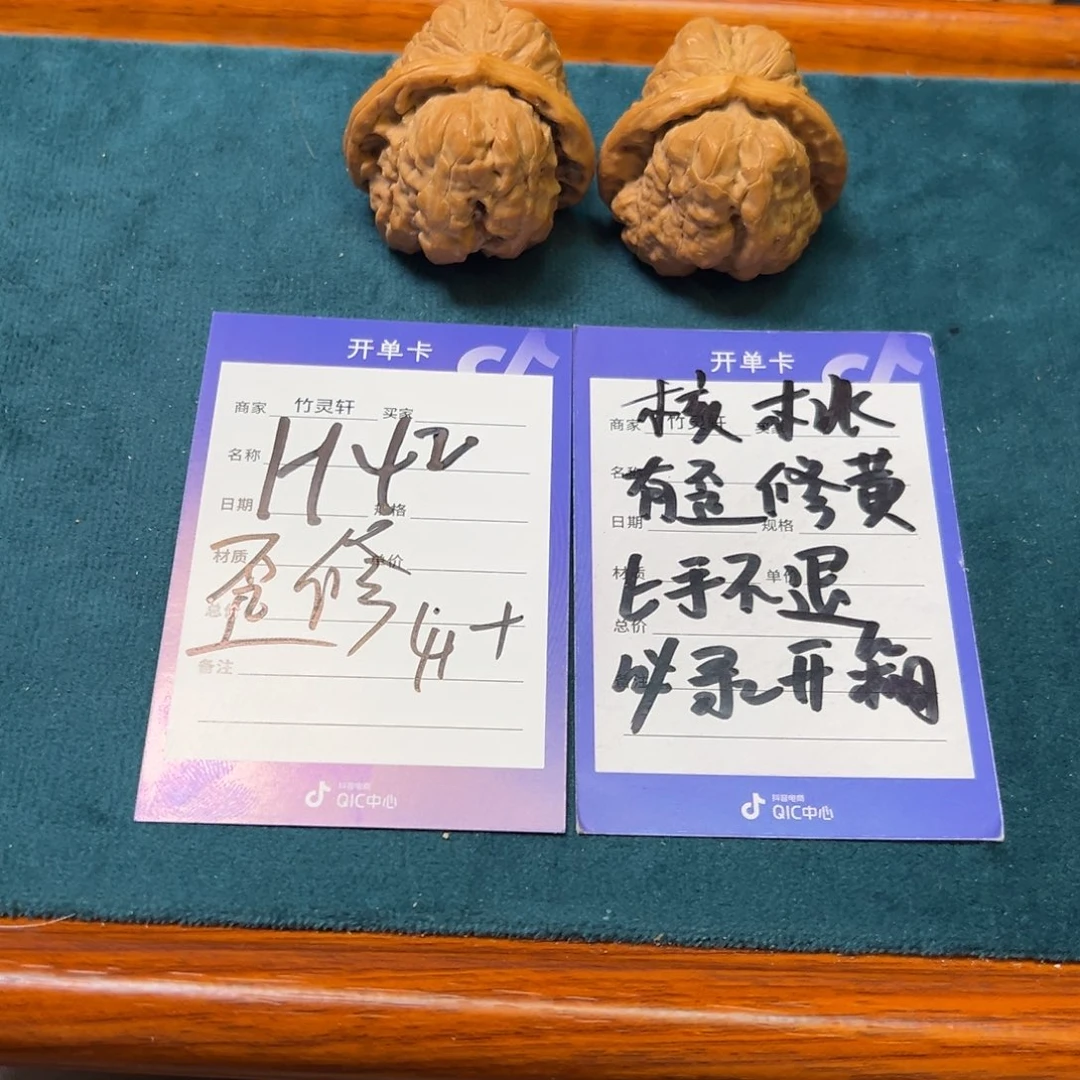 开单卡
商家 竹灵轩 买家
名称
H42
日期 规格
材质 单价
歪修
44+
总价
备注
抖音电商
QIC中心
开单卡
核桃
商家 竹灵轩 买家
名称
有歪修黄
日期 规格
材质 单价
上手不退
总价
必录开箱
抖音电商
QIC中心